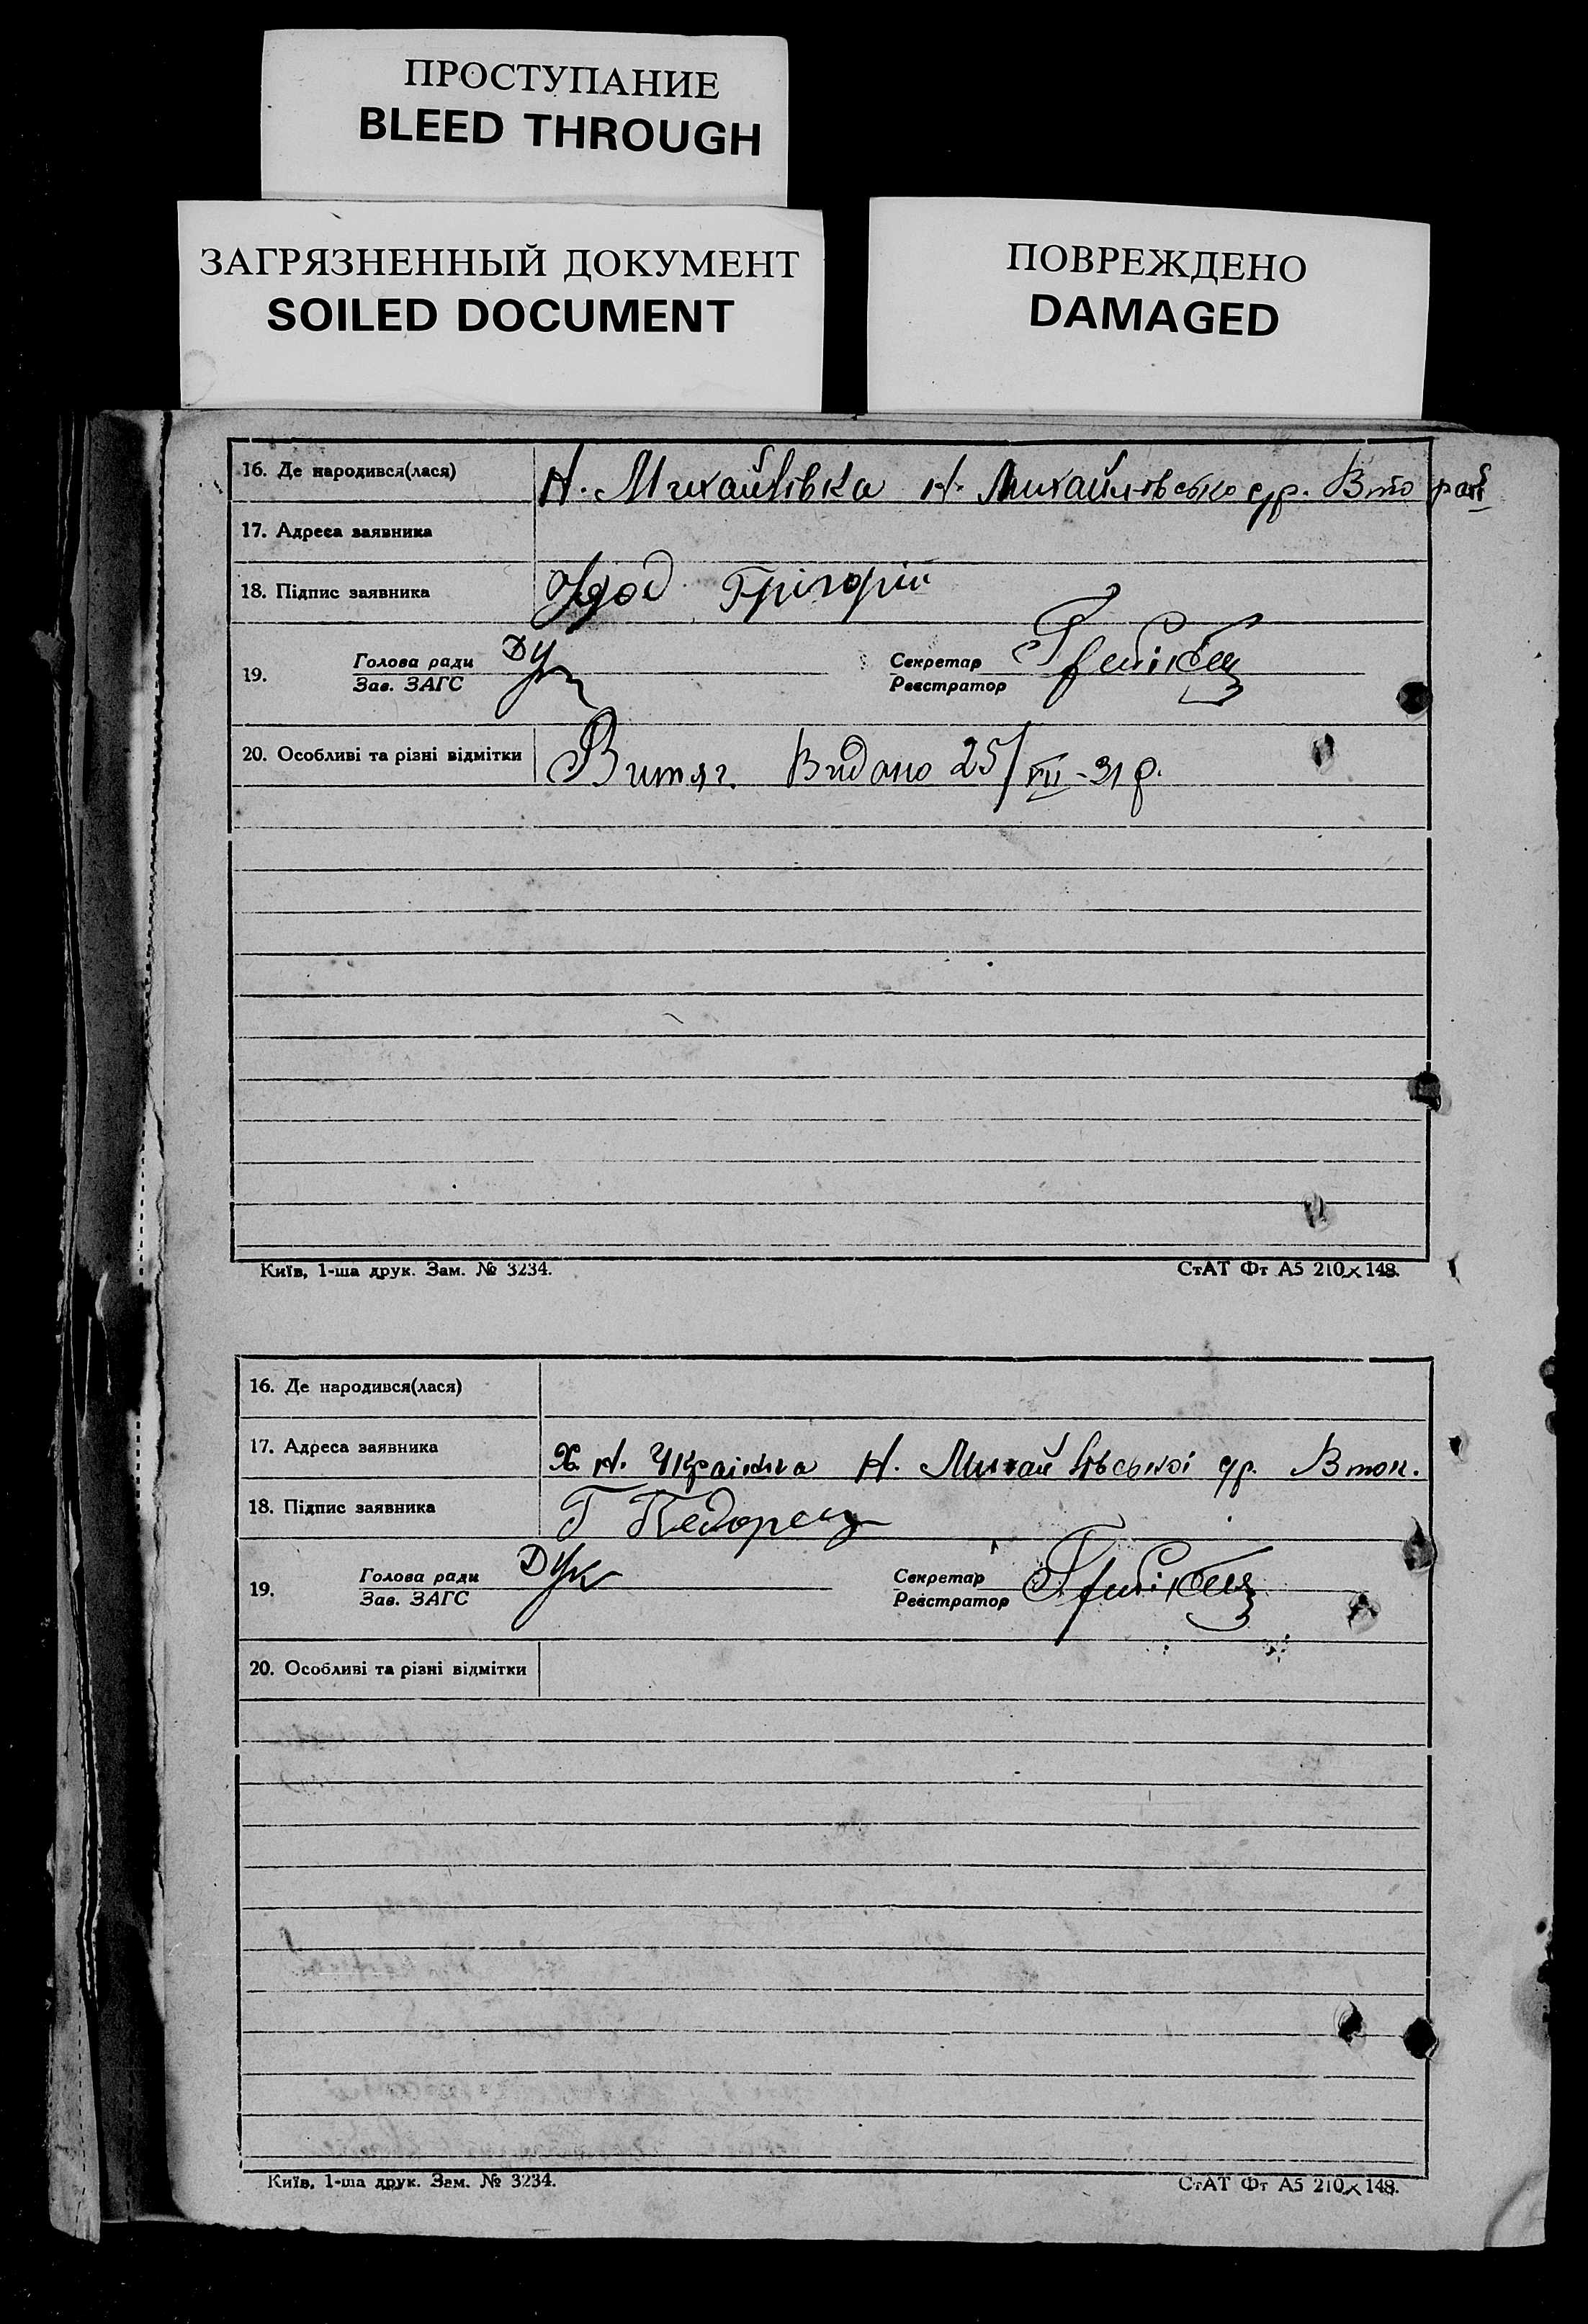 ПРОСТУПАНИЕ
BLEED THROUGH
ЗАГРЯЗНЕННЫЙ ДОКУМЕНТ
SOILED DOCUMENT
ПОВРЕЖДЕНО
DAMAGED
16. Де народився(лася) Н. Михайлівка Н. Михайлівсько с/р.
17. Адреса заявника
18. Підпис заявника Удод Грігорій
19. Голова ради Дук Секретар
Зав. ЗАГС Реєстратор
20. Особливі та різні відмітки Витяг. Видано 25/VII-31 р.
Київ, 1-ша друк. Зам. № 3234. СтАТ Фт А5 210×148.
16. Де народився(лася)
17. Адреса заявника Х. Н. Українка Н. Михайлівської с/р.
18. Підпис заявника Г
19. Голова ради Дук Секретар
Зав. ЗАГС Реєстратор
20. Особливі та різні відмітки
Київ, 1-ша друк. Зам. № 3234. СтАТ Фт А5 210×148.